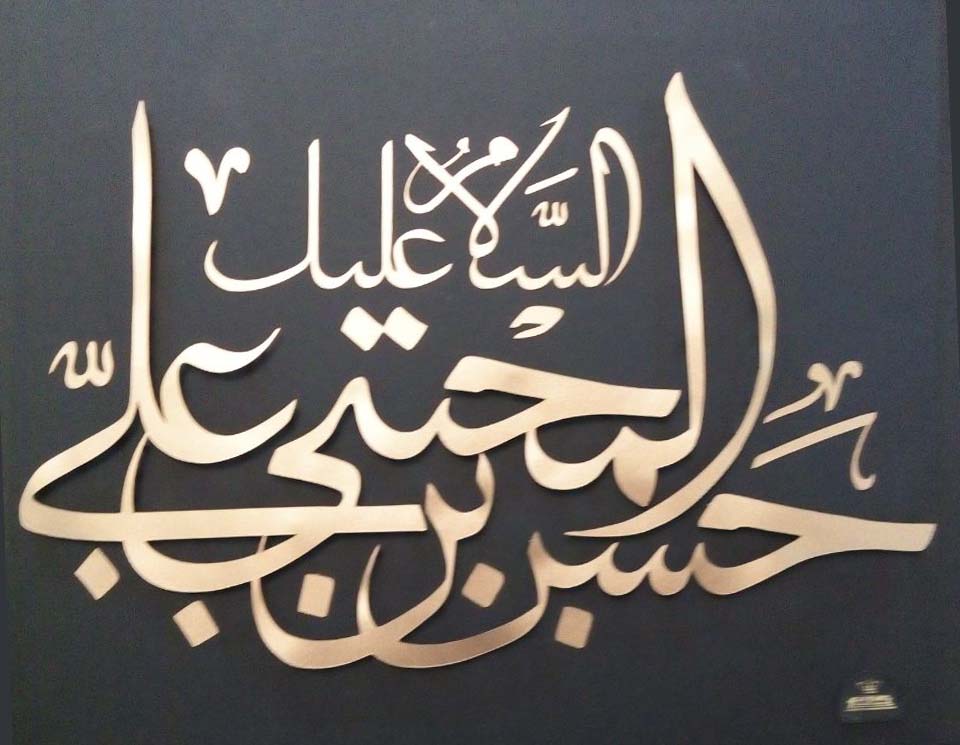 السَّلامُ عليك
حسن بن علیّ المجتبی